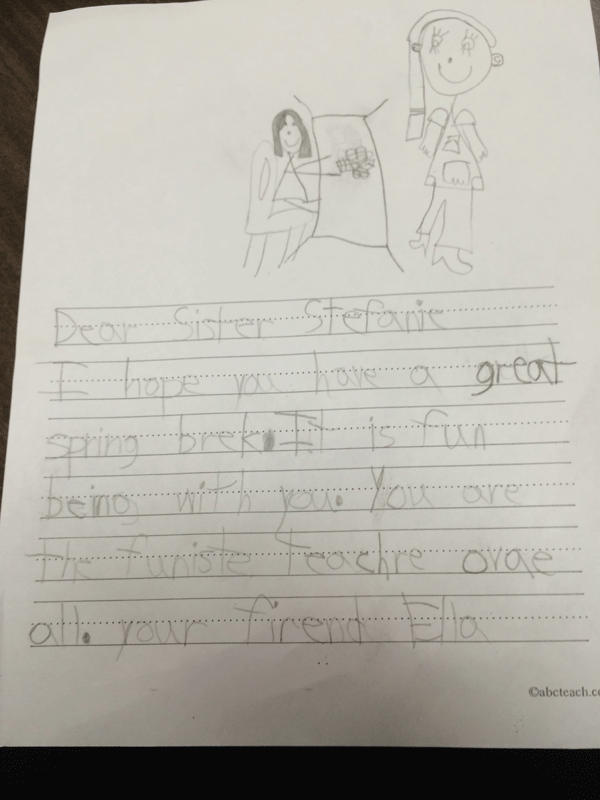 Dear Sister Stefanie
I hope you have a great
spring brek. It is fun
being with you. You are
the funiste teachre ovae
all. your firend Ella
©abcteach.co